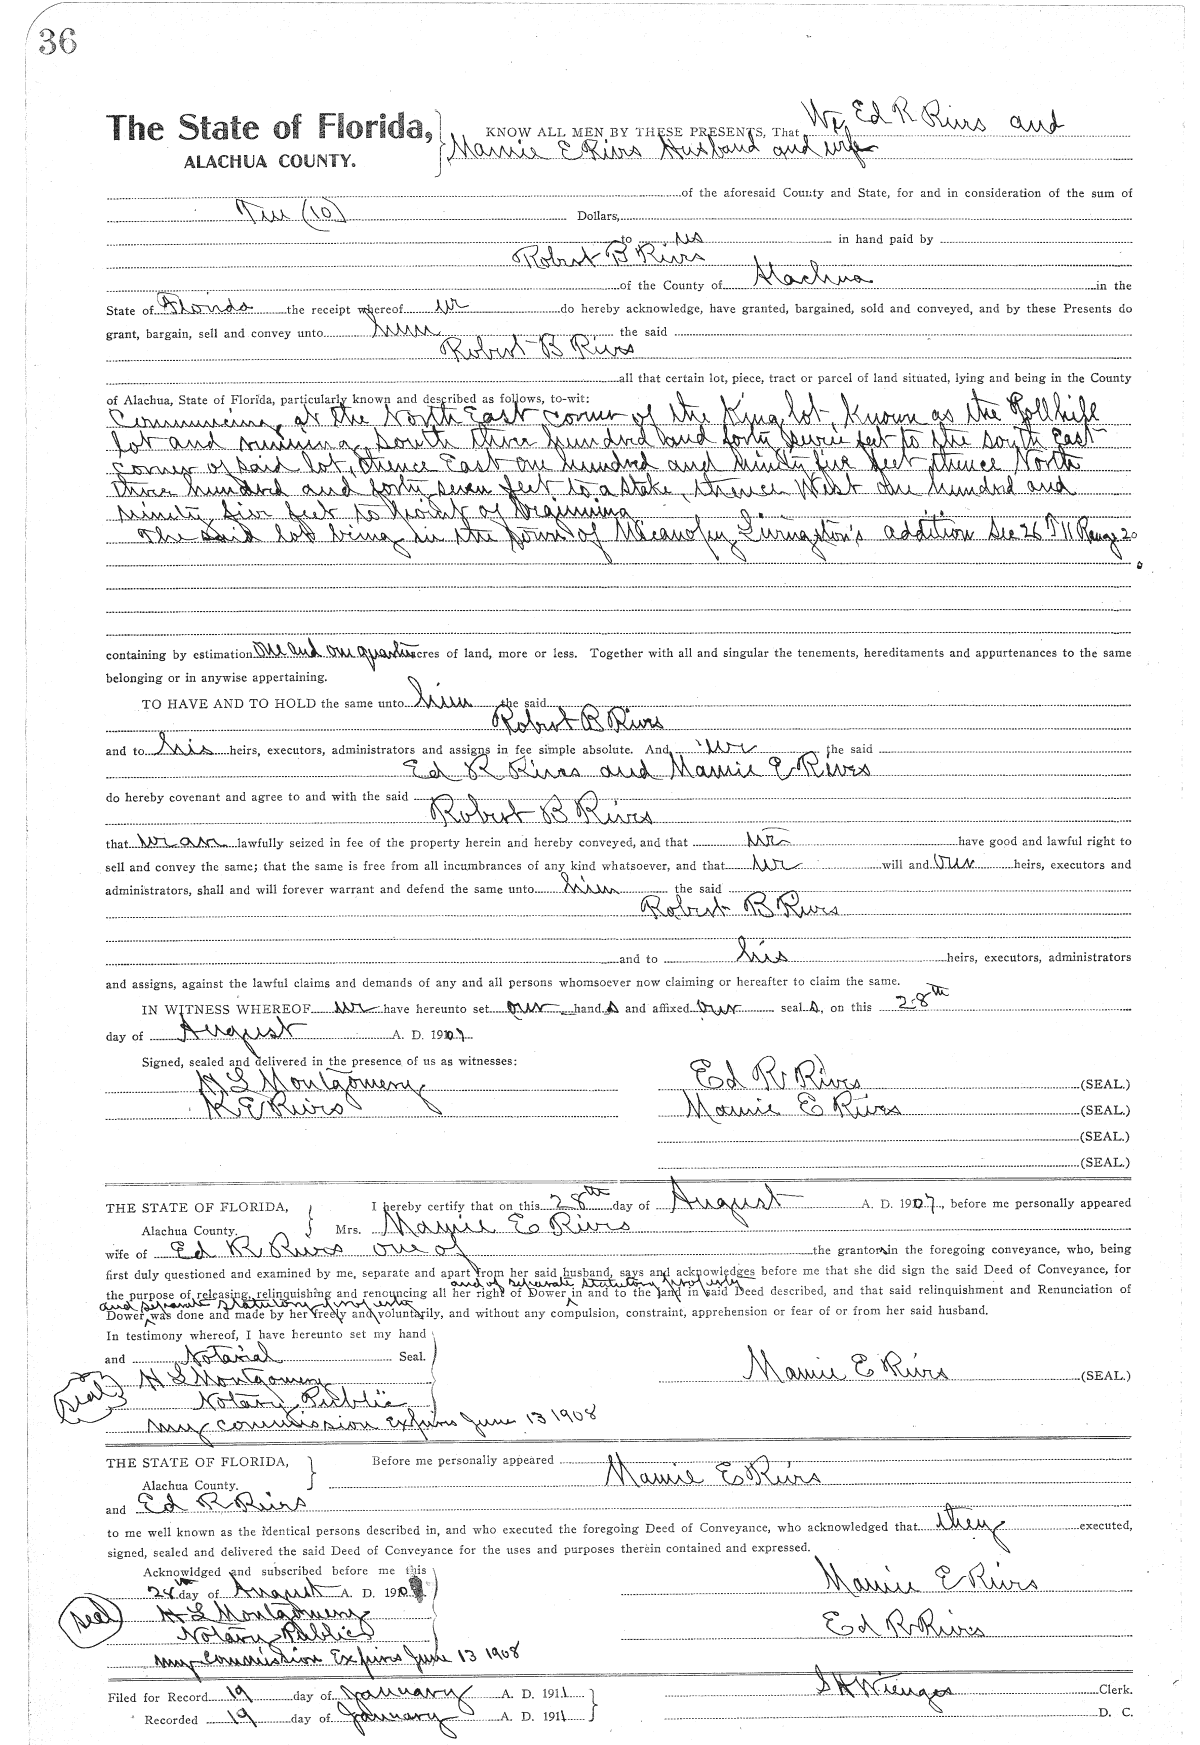 36
The State of Florida, KNOW ALL MEN BY THESE PRESENTS, That We Ed R Rives and
ALACHUA COUNTY. Mamie E Rives Husband and wife
of the aforesaid County and State, for and in consideration of the sum of
Ten (10) Dollars,
to us in hand paid by
Robert B Rives
of the County of Alachua in the
State of Florida the receipt whereof we do hereby acknowledge, have granted, bargained, sold and conveyed, and by these Presents do
grant, bargain, sell and convey unto him the said
Robert B Rives
all that certain lot, piece, tract or parcel of land situated, lying and being in the County
of Alachua, State of Florida, particularly known and described as follows, to-wit:
Commencing at the North East corner of the King lot, known as the
lot and running south three hundred and forty seven feet to the south East
corner of said lot, thence East one hundred and ninety five feet, thence North
three hundred and forty seven feet to a stake, thence West one hundred and
ninety five feet to point of beginning
The said lot being in the town of Micanopy Livingston's addition Sec 26 T 11 Range 20
containing by estimation one and one quarter acres of land, more or less. Together with all and singular the tenements, hereditaments and appurtenances to the same
belonging or in anywise appertaining.
TO HAVE AND TO HOLD the same unto him the said
Robert B Rives
and to his heirs, executors, administrators and assigns in fee simple absolute. And we the said
Ed R Rives and Mamie E Rives
do hereby covenant and agree to and with the said
Robert B Rives
that we are lawfully seized in fee of the property herein and hereby conveyed, and that we have good and lawful right to
sell and convey the same; that the same is free from all incumbrances of any kind whatsoever, and that we will and our heirs, executors and
administrators, shall and will forever warrant and defend the same unto him the said
Robert B Rives
and to his heirs, executors, administrators
and assigns, against the lawful claims and demands of any and all persons whomsoever now claiming or hereafter to claim the same.
IN WITNESS WHEREOF we have hereunto set our hand s and affixed our seal s, on this 28th
day of August A. D. 1907
Signed, sealed and delivered in the presence of us as witnesses:
H L Montgomery Ed R Rives (SEAL.)
R E Rives Mamie E Rives (SEAL.)
(SEAL.)
(SEAL.)
THE STATE OF FLORIDA, I hereby certify that on this 28th day of August A. D. 1907, before me personally appeared
Alachua County. Mrs. Mamie E Rives
wife of Ed R Rives one of the grantors in the foregoing conveyance, who, being
first duly questioned and examined by me, separate and apart from her said husband, says and acknowledges before me that she did sign the said Deed of Conveyance, for
and of separate statutory property
the purpose of releasing, relinquishing and renouncing all her right of Dower in and to the land in said Deed described, and that said relinquishment and Renunciation of
and separate statutory property
Dower was done and made by her freely and voluntarily, and without any compulsion, constraint, apprehension or fear of or from her said husband.
In testimony whereof, I have hereunto set my hand
and Notarial Seal.
seal H L Montgomery Mamie E Rives (SEAL.)
Notary Public
My commission Expires June 13 1908
THE STATE OF FLORIDA, Before me personally appeared
Alachua County. Mamie E Rives
and Ed R Rives
to me well known as the identical persons described in, and who executed the foregoing Deed of Conveyance, who acknowledged that they executed,
signed, sealed and delivered the said Deed of Conveyance for the uses and purposes therein contained and expressed.
Acknowldged and subscribed before me this
28th day of August A. D. 190 Mamie E Rives
seal H L Montgomery Ed R Rives
Notary Public
My Commission Expires June 13 1908
Filed for Record 19 day of January A. D. 1911 S H Wienges Clerk.
Recorded 19 day of January A. D. 1911 D. C.